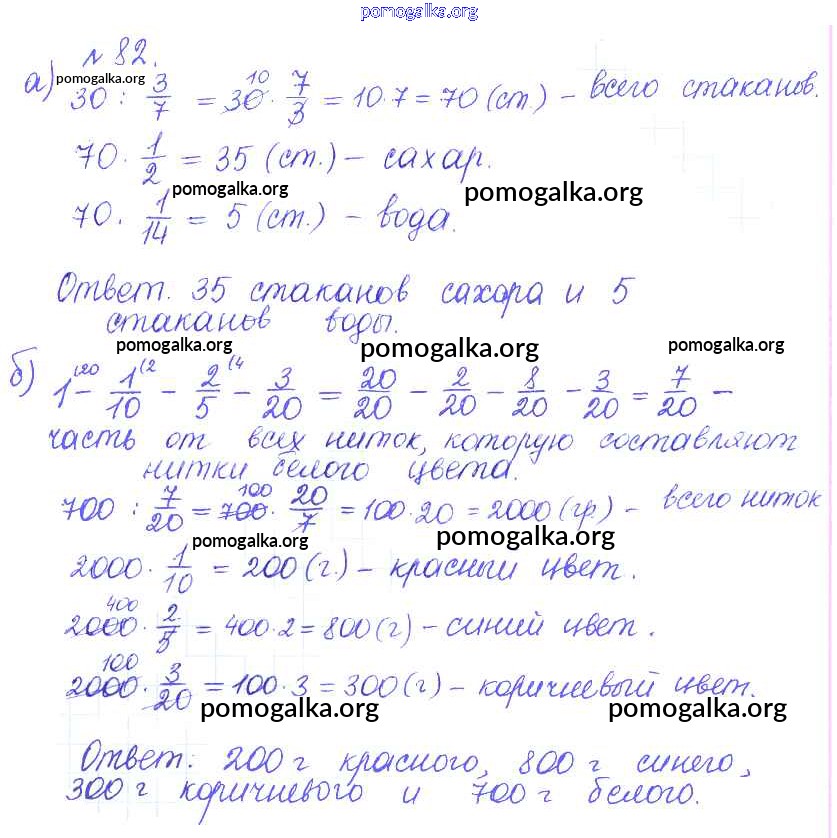 pomogalka.org
№ 82.
а) 30 : 3/7 = 30 · 7/3 = 10 · 7 = 70 (ст.) – всего стаканов.
pomogalka.org 10
70 · 1/2 = 35 (ст.) – сахар.
pomogalka.org pomogalka.org
70 · 1/14 = 5 (ст.) – вода.
Ответ. 35 стаканов сахара и 5
стаканов воды.
pomogalka.org pomogalka.org pomogalka.org
б) 1(20 – 1(2/10 – 2(4/5 – 3/20 = 20/20 – 2/20 – 8/20 – 3/20 = 7/20 –
часть от всех ниток, которую составляют
нитки белого цвета.
100
700 : 7/20 = 700 · 20/7 = 100 · 20 = 2000 (гр) – всего ниток
pomogalka.org pomogalka.org
2000 · 1/10 = 200 (г.) – красный цвет.
400
2000 · 2/5 = 400 · 2 = 800 (г) – синий цвет.
100
2000 · 3/20 = 100 · 3 = 300 (г) – коричневый цвет.
pomogalka.org pomogalka.org
Ответ: 200 г красного, 800 г синего,
300 г коричневого и 700 г белого.